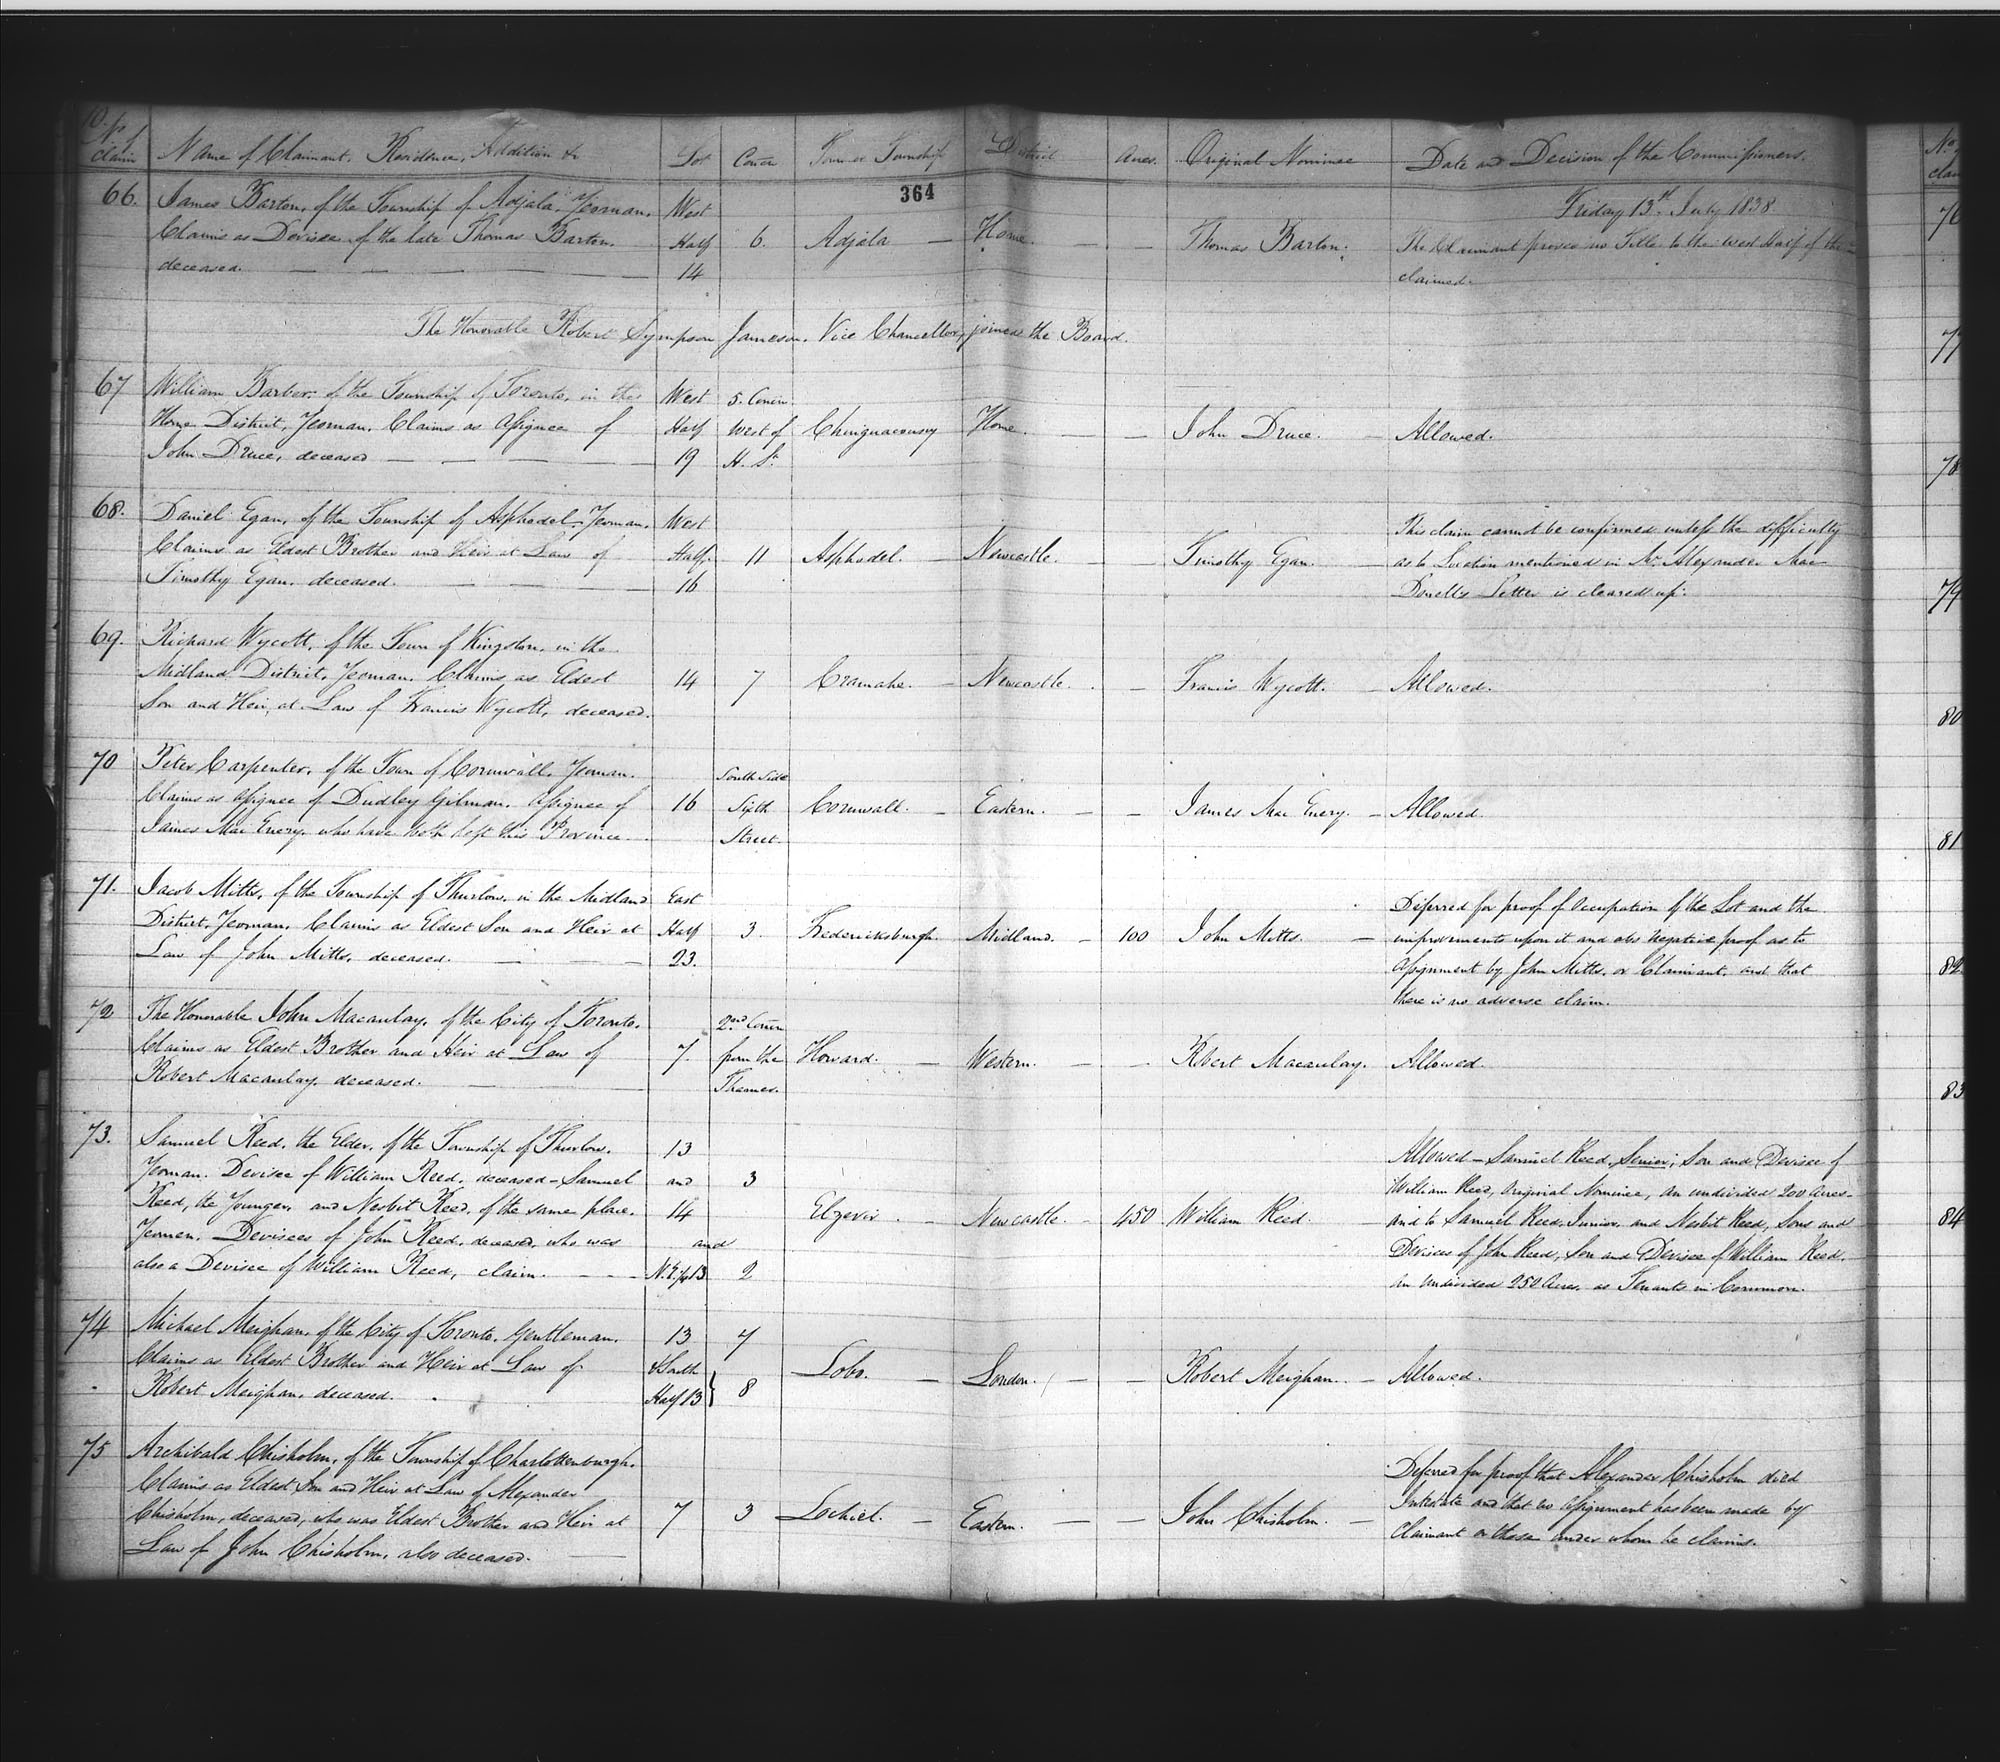 No. of claim | Name of Claimant, Residence, Addition &c | Lot | Concn | Town or Township | District | Acres. | Original Nominee | Date and Decision of the Commissioners.
364
Friday 13th July 1838
66. James Barton, of the Township of Adjala, Yeoman, | West
Claims as Devisee of the late Thomas Barton, | Half | 6. | Adjala — | Home. — | — | Thomas Barton. | The Claimant proves no Title to the West Half of the
deceased. — — — — — | 14 | claimed.
The Honorable Robert Sympson Jameson, Vice Chancellor, joined the Board.
67 William Barber, of the Township of Toronto, in the | West | 5. Concn.
Home District, Yeoman, Claims as Assignee of | Half | West of | Chinguacousy | Home. — | — | John Druce. — | Allowed.
John Druce, deceased — — — — | 19 | H. St.
68. Daniel Egan, of the Township of Asphodel, Yeoman, | West | This claim cannot be confirmed unless the difficulty
Claims as Eldest Brother and Heir at Law of | Half | 11 | Asphodel. — | Newcastle. — | — | Timothy Egan. — | as to Location mentioned in Mr. Alexander Mac
Timothy Egan, deceased. — — — | 16 | Donell's Letter is cleared up.
69. Richard Wycott, of the Town of Kingston, in the
Midland District, Yeoman, Claims as Eldest | 14 | 7 | Cramahe. — | Newcastle. | — | Francis Wycott. — | Allowed.
Son and Heir, at Law of Francis Wycott, deceased.
70 Peter Carpenter, of the Town of Cornwall, Yeoman. | South Side
Claims as Assignee of Dudley Gilman, Assignee of | 16 | Sixth | Cornwall. — | Eastern. — | — | James Mac Enery. — | Allowed.
James Mac Enery, who have both left this Province. | Street.
71. Jacob Mitts, of the Township of Thurlow, in the Midland | East | Deferred for proof of Occupation of the Lot and the
District, Yeoman, Claims as Eldest Son and Heir at | Half | 3. | Fredericksburgh. | Midland. — | 100 | John Mitts. — | improvements upon it and also Negative proof as to
Law of John Mitts, deceased. — — | 23. | Assignment by John Mitts, or Claimant, and that
there is no adverse claim.
72 The Honorable John Macaulay, of the City of Toronto. | 2nd Concn
Claims as Eldest Brother and Heir at Law of | 7. | from the | Howard. — | Western. — | — | Robert Macaulay. | Allowed.
Robert Macaulay, deceased. — — | Thames.
73. Samuel Reed, the Elder, of the Township of Thurlow. | 13 | Allowed — Samuel Reed, Senior, Son and Devisee of
Yeoman. Devisee of William Reed, deceased — Samuel | and | 3 | William Reed, Original Nominee, an undivided 200 Acres—
Reed, the Younger, and Nesbit Reed, of the same place. | 14 | Elzevir. — | Newcastle. — | 450 | William Reed. — | and to Samuel Reed, Junior, and Nesbit Reed, Sons and
Yeomen, Devisees of John Reed, deceased, who was | and | Devisees of John Reed, Son and Devisee of William Reed.
also a Devisee of William Reed, claim. — — | N.E. pt 13 | 2 | an undivided 250 Acres, as Tenants in Common.
74 Michael Meighan, of the City of Toronto, Gentleman. | 13 | 7
Claims as Eldest Brother and Heir at Law of | & South | Lobo. — | London. — | — | Robert Meighan. — | Allowed.
Robert Meighan, deceased. | Half 13 } | 8
75 Archibald Chisholm, of the Township of Charlottenburgh. | Deferred for proof that Alexander Chisholm died
Claims as Eldest Son and Heir at Law of Alexander | Intestate and that no Assignment has been made by
Chisholm, deceased, who was Eldest Brother and Heir at | 7 | 3 | Lochiel. — | Eastern. — | — | John Chisholm. — | Claimant or those under whom he claims.
Law of John Chisholm, also deceased. —
No. | claim
76
77
78
79
80
81
82
83
84